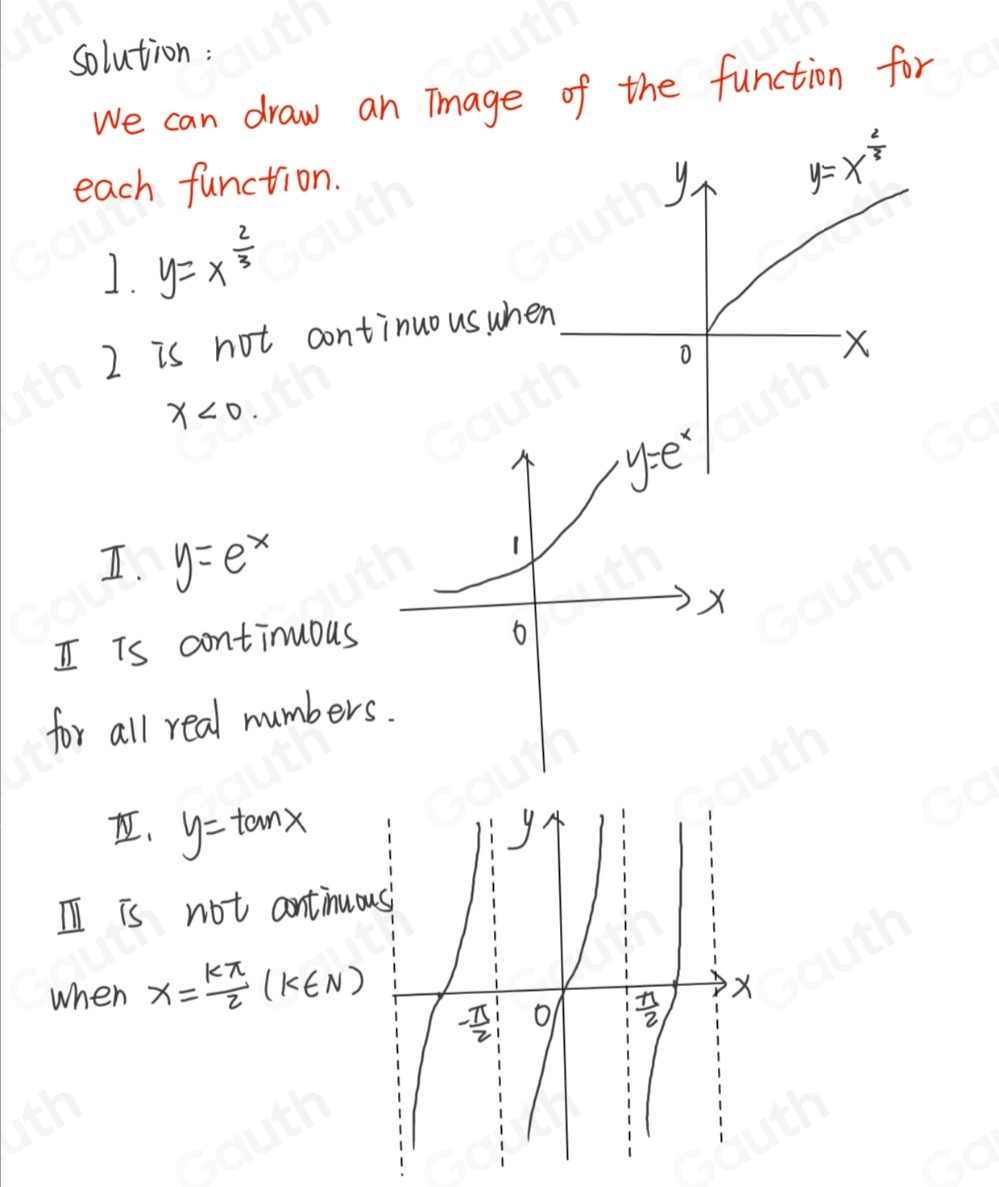 Solution:
We can draw an Image of the function for
each function.
y
y=x^{2/3}
1. y=x^{2/3}
2 is not continuous when
x<0.
0
X
y=e^x
II. y=e^x
1
X
0
II Is continuous
for all real numbers.
IV. y=tanx
y
III is not continuous
when x=kπ/2 (K∈N)
X
-π/2
0
π/2